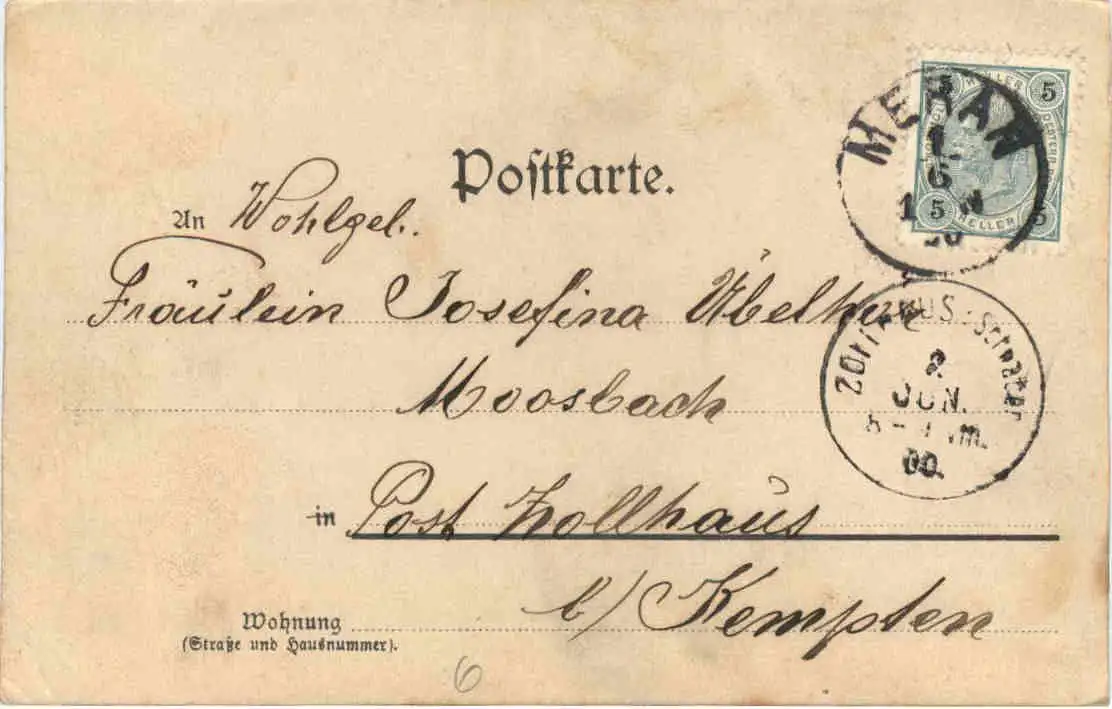 Postkarte.
An Wohlgel.
Fräulein Josefina Übelhur
Moosbach
in Post Zollhaus
b/ Kempten
Wohnung
(Straße und Hausnummer).
6
5 HELLER 5
5 HELLER 5
MERAN
1
6
2.
JUN.
00.